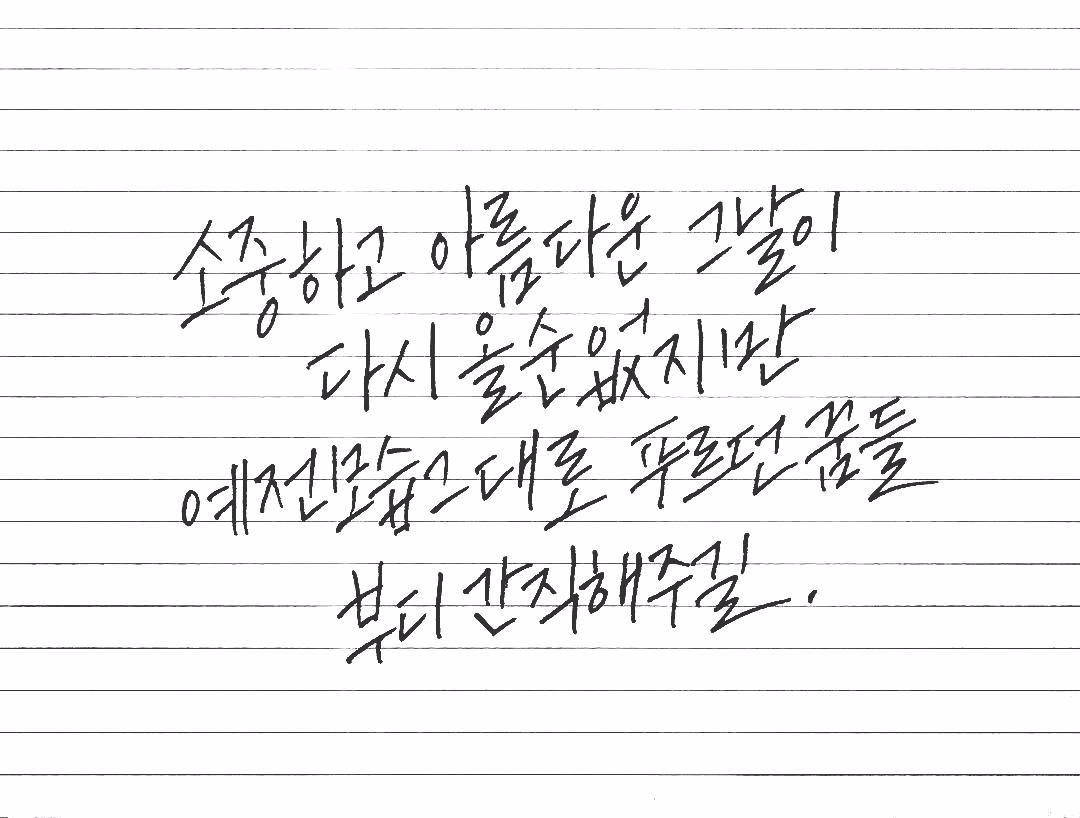 소중하고 아름다운 그날이
다시 올순없지만
예전모습그대로 푸르던 꿈들
부디 간직해주길.